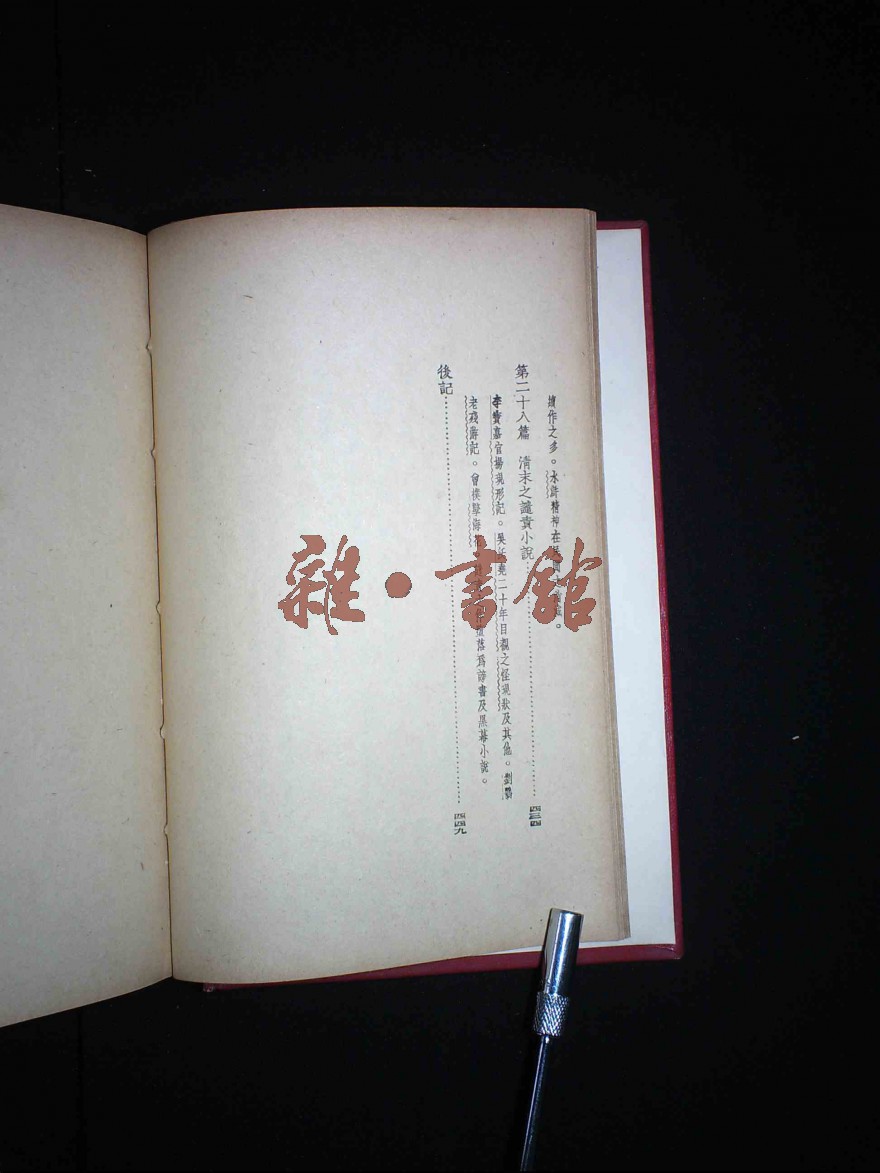 續作之多。水滸精神在民間
第二十八篇 清末之譴責小說 四三四
李寶嘉官場現形記。吳沃堯二十年目覩之怪現狀及其他。劉鶚
老殘游記。曾樸孽海花。落爲謗書及黑幕小說。
後記 四四九
雜·書館